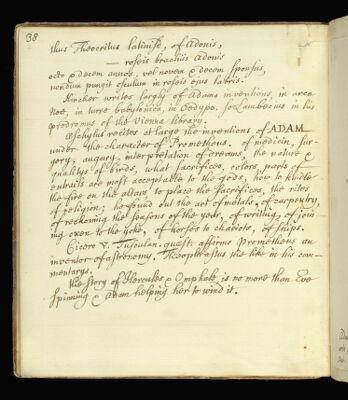 38
thus Theocritus latiniss, of Adonis,
— roseis brachiis Adonis
octo & decem annos, vel novem & decem sponsus,
nondum pungit osculum in roseis ejus labris.
Kircher writes largly of Adams inventions, in arca
Noe, in turre babylonica, in Oedypo. so Lambecius in his
prodromus of the Vienna library.
Aschylus recites at large the inventions of ADAM
under the character of Prometheus. of medicin, sur-
gery, augury, interpretation of dreams, the nature &
qualitys of birds, what sacrifices, colors parts of
entrails are most acceptable to the gods, how to kindle
the fire on the altars, to place the sacrifices, the rites
of religion; he found out the art of metals, of carpentry,
of reckoning the seasons of the year, of writing, of join
ing oxen to the yoke, of horses to chariots, of ships.
Cicero V. Tusculan. quest: affirms Prometheus an
inventor of astronomy. Theophrastus the like in his com-
mentarys.
the story of Hercules & Omphale, is no more than Eve
spinning & Adam helping her to wind it.